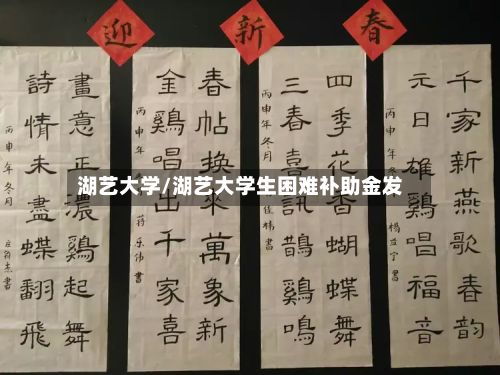 迎新春
湖艺大学/湖艺大学生困难补助金发
千家新燕歌春韵
元日雄鷄唱福音
丙申年
四季花香蝴蝶舞
三春喜訊鵲鷄鳴
丙申年冬月
春帖换來萬象新
金鷄唱出千家喜
丙申年
畫意正濃鷄起舞
詩情未盡蝶翻飛
丙申年冬月